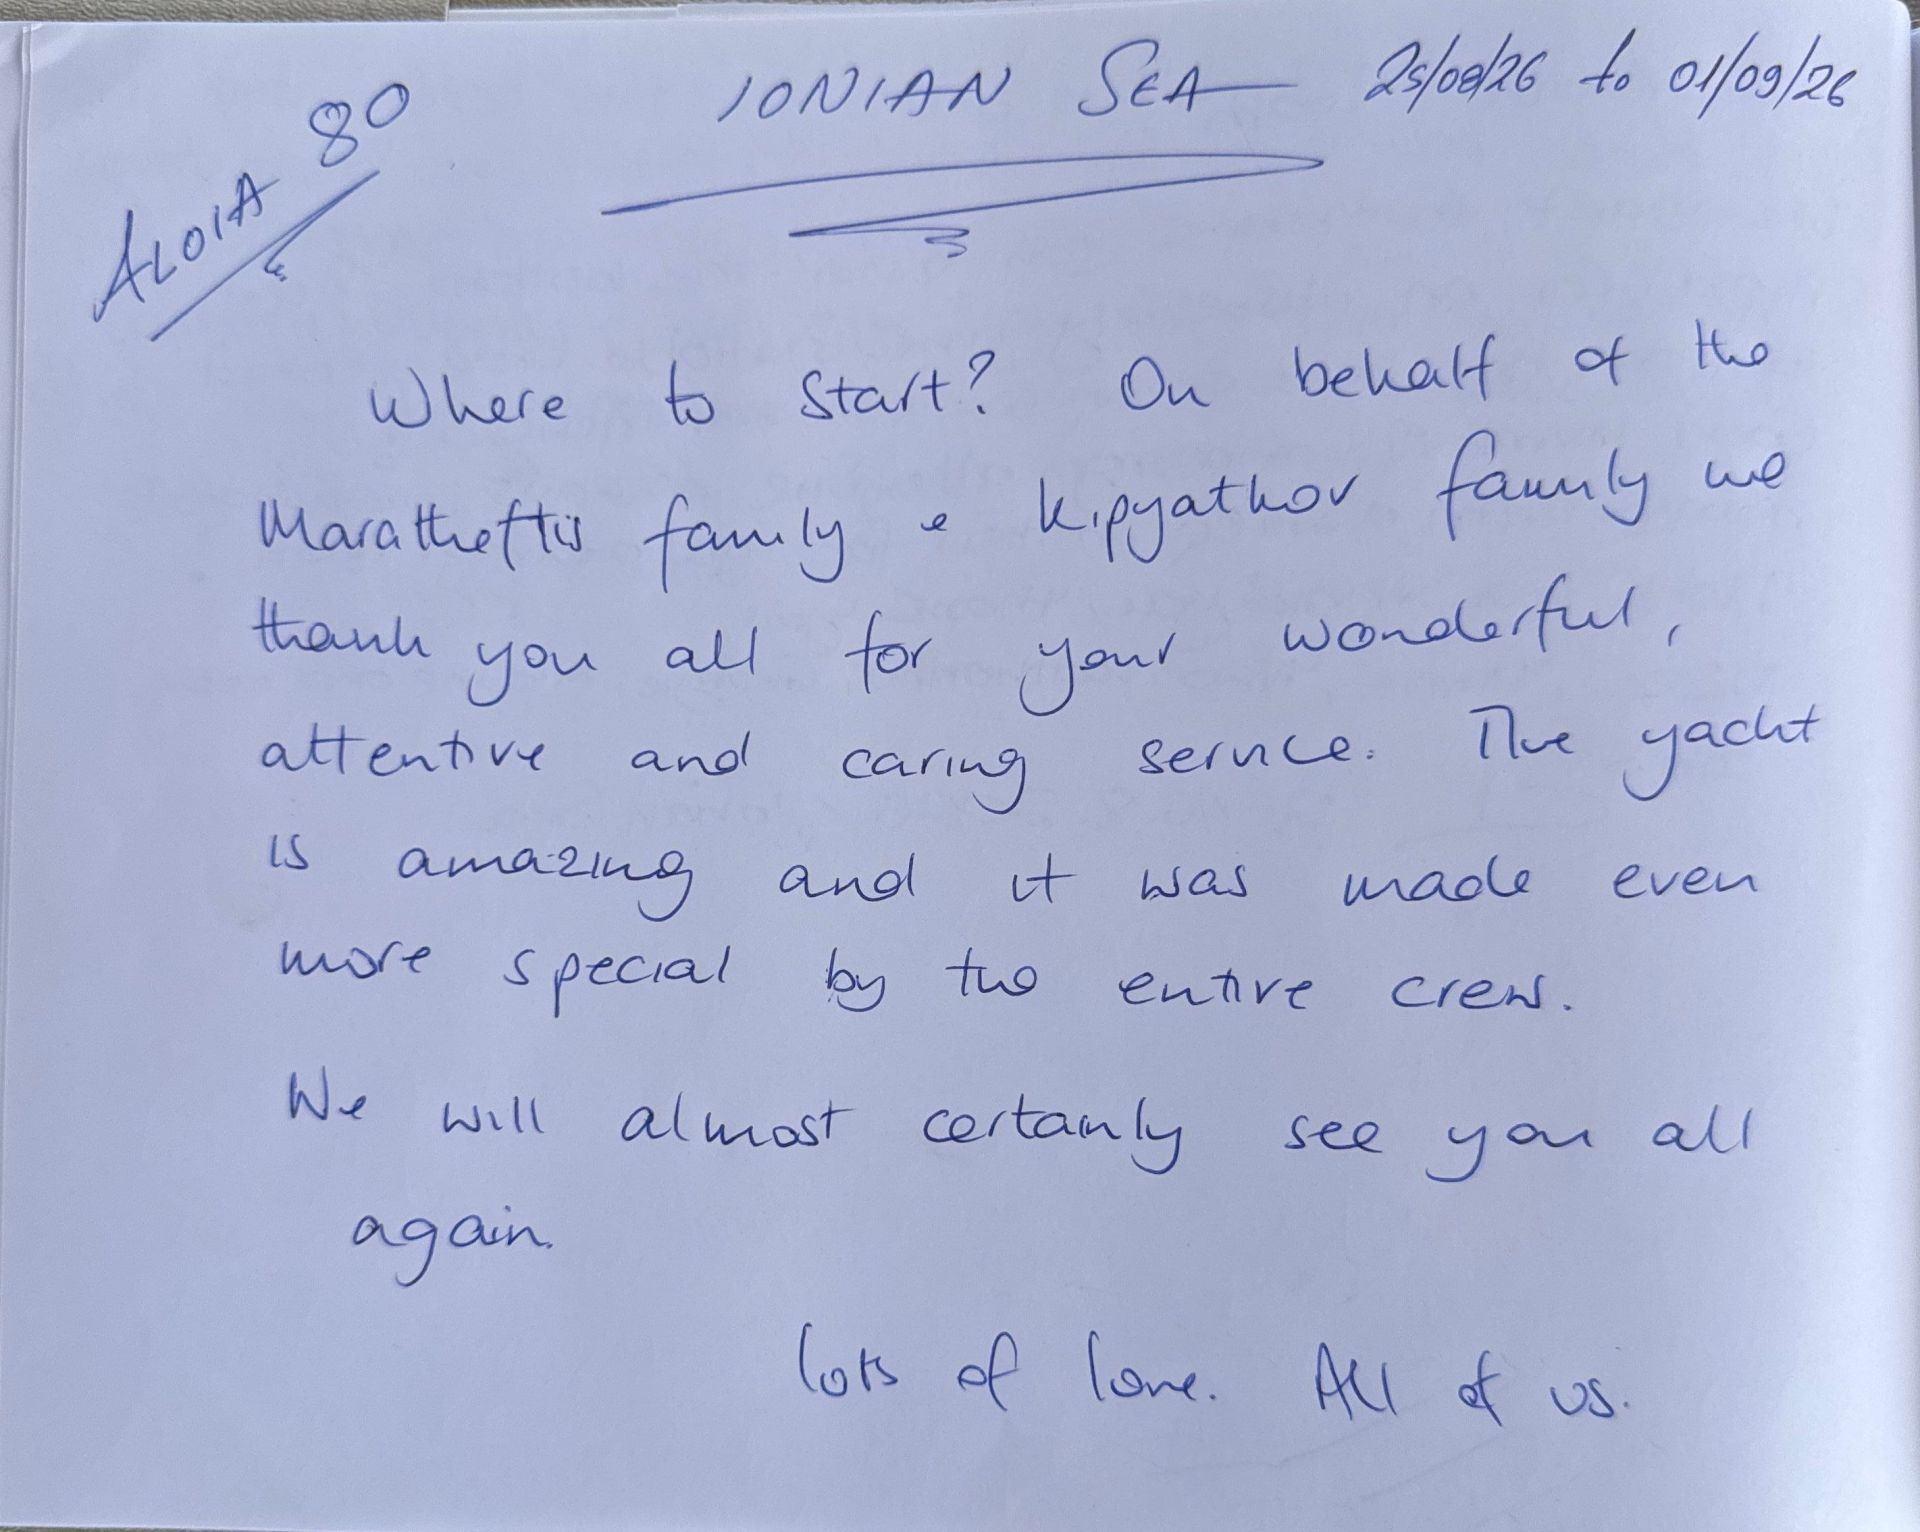 ALOIA 80
IONIAN SEA 25/08/26 to 01/09/26
Where to start? On behalf of the
Maratheftis family & Kipyatkov family we
thank you all for your wonderful,
attentive and caring service. The yacht
is amazing and it was made even
more special by the entire crew.
We will almost certainly see you all
again.
lots of love. All of us.